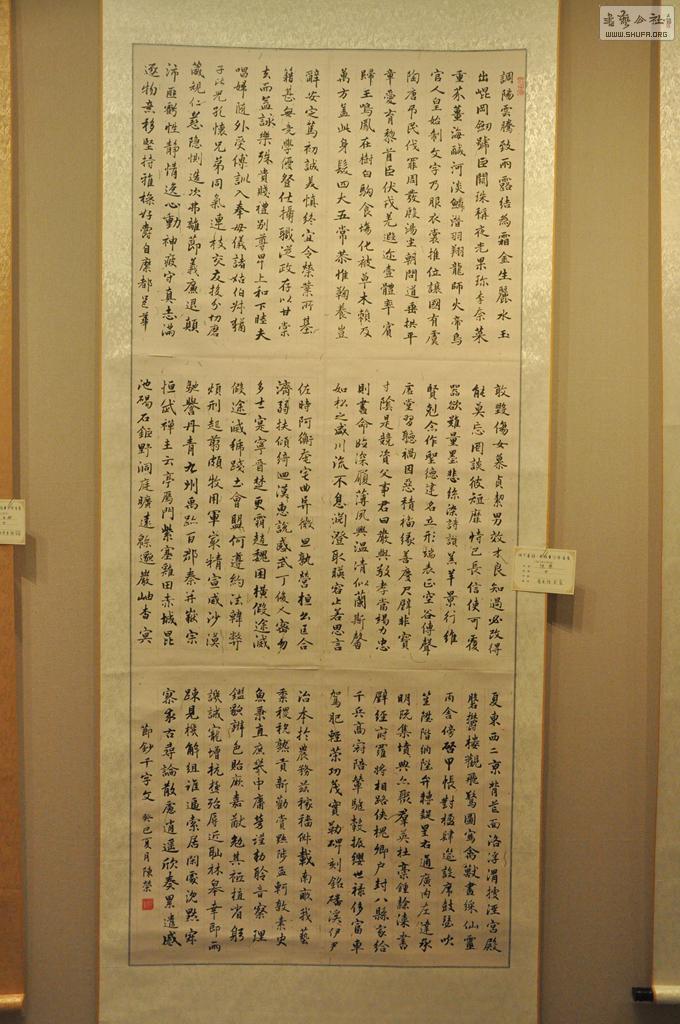 調陽雲騰致雨露結為霜金生麗水玉
出崐岡劒號巨闕珠稱夜光果珍李柰菜
重芥薑海鹹河淡鱗潛羽翔龍師火帝鳥
官人皇始制文字乃服衣裳推位讓國有虞
陶唐弔民伐罪周發殷湯坐朝問道垂拱平
章愛育黎首臣伏戎羌遐迩壹體率賓
歸王鳴鳳在樹白駒食場化被草木賴及
萬方蓋此身髮四大五常恭惟鞠養豈
敢毀傷女慕貞絜男效才良知過必改得
能莫忘罔談彼短靡恃己長信使可覆
器欲難量墨悲絲染詩讚羔羊景行維
賢剋念作聖德建名立形端表正空谷傳聲
虛堂習聽禍因惡積福緣善慶尺璧非寶
寸陰是競資父事君曰嚴與敬孝當竭力忠
則盡命臨深履薄夙興溫凊似蘭斯馨
如松之盛川流不息淵澄取暎容止若思言
辭安定篤初誠美慎終宜令榮業所基
籍甚無竟學優登仕攝職從政存以甘棠
去而益詠樂殊貴賤禮別尊卑上和下睦夫
唱婦隨外受傅訓入奉母儀諸姑伯叔猶
子比兒孔懷兄弟同氣連枝交友投分切磨
箴規仁慈隱惻造次弗離節義廉退顛
沛匪虧性靜情逸心動神疲守真志滿
逐物意移堅持雅操好爵自縻都邑華
夏東西二京背芒面洛浮渭據涇宮殿
盤鬱樓觀飛驚圖寫禽獸畫綵仙靈
丙舍傍啓甲帳對楹肆筵設席鼓瑟吹
笙陞階納陛弁轉疑星右通廣內左達承
明既集墳典亦聚群英杜稾鍾隸漆書
壁經府羅將相路俠槐卿戶封八縣家給
千兵高冠陪輦驅轂振纓世祿侈富車
駕肥輕策功茂實勒碑刻銘磻溪伊尹
佐時阿衡奄宅曲阜微旦孰營桓公匡合
濟弱扶傾綺迴漢惠說感武丁俊乂密勿
多士寔寧晉楚更霸趙魏困橫假途滅
假途滅虢踐土會盟何遵約法韓弊
煩刑起翦頗牧用軍最精宣威沙漠
馳譽丹青九州禹跡百郡秦并嶽宗
恒岱禪主云亭雁門紫塞雞田赤城昆
池碣石鉅野洞庭曠遠緜邈巖岫杳冥
治本於農務茲稼穡俶載南畝我藝
黍稷稅熟貢新勸賞黜陟孟軻敦素史
魚秉直庶幾中庸勞謹勅聆音察理
鑑貌辨色貽厥嘉猷勉其祗植省躬
譏誡寵增抗極殆辱近恥林皋幸即兩
疎見機解組誰逼索居閑處沈默寂
寥求古尋論散慮逍遙欣奏累遣慼
節鈔千字文 癸巳夏月陳榮
WWW.SHUFA.ORG